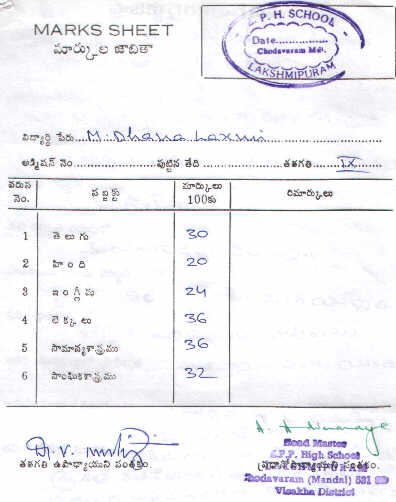 MARKS SHEET
మార్కుల జాబితా
Z. P. H. SCHOOL
Date................
Chodavaram Mdl.
LAKSHMIPURAM
విద్యార్థి పేరు M. Dhana Laxmi
అడ్మిషన్ నెం.................... పుట్టిన తేది.................... తరగతి IX
వరుస నెం. సబ్జక్టు మార్కులు 100కు రిమార్కులు
1 తెలుగు 30
2 హింది 20
3 ఇంగ్లీషు 24
4 లెక్కలు 36
5 సామాన్యశాస్త్రము 36
6 సాంఘికశాస్త్రము 32
తరగతి ఉపాధ్యాయుని సంతకం.
Head Master
Z.P.P. High School
LAKSHMIPURAM
Chodavaram (Mandal) 531
Visakha District